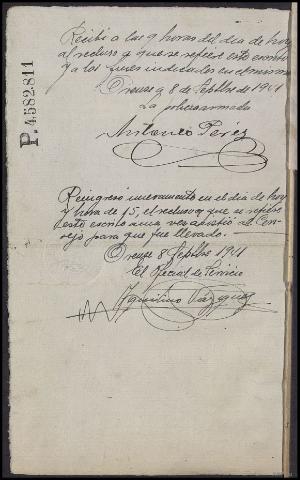 P.4.582.811
Recibi a las 9 horas del dia de hoy
al recluso a que se refiere este escrito
y a los fines indicados en el mismo
Orense 9 8 de Septbre de 1941
La policia armada
Antonio Perez
Reingresó nuevamente en el dia de hoy
y hora de 15, el recluso a que se refiere
este escrito una vez asistió al Con-
sejo para que fue llevado.
Orense 8 Septbre 1941
El Oficial de Servicio
Aquilino Vázquez